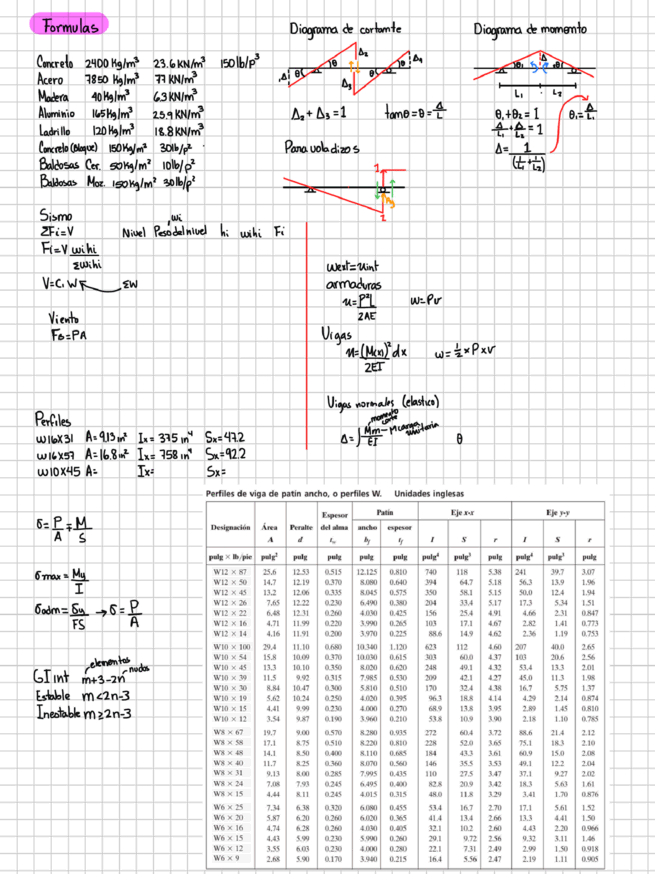 Formulas
Diagrama de cortante
Diagrama de momento
Concreto 2400 Kg/m³ 23.6 KN/m³ 150 lb/p³
Acero 7850 Kg/m³ 77 KN/m³
Madera 40 Kg/m³ 6.3 KN/m³
Aluminio 165 Kg/m³ 25.9 KN/m³
Ladrillo 120 Kg/m³ 18.8 KN/m³
Concreto (Bloque) 150 Kg/m² 30 lb/p²
Baldosas Cer. 50 Kg/m² 10 lb/p²
Baldosas Moz. 150 Kg/m² 30 lb/p²
Δ θ Δ₂ Δ₃ θ θ Δ₄
Δ₂ + Δ₃ = 1 tanθ = θ = Δ/L
θ₁ Δ θ₂
L₁ L₂
θ₁ + θ₂ = 1 θ₁ = Δ/L₁
Δ/L₁ + Δ/L₂ = 1
Δ = 1/(1/L₁ + 1/L₂)
Para voladizos
1
1
Sismo
ΣFi = V Nivel Peso del nivel wi hi wihi Fi
Fi = V wihi/Σwihi
V = C. W ΣW
Viento
Fs = PA
Wext = Uint
armaduras
u = P²L/2AE w = Pv
Vigas
u = (M(x))² dx/2EI w = ½ x P x v
Vigas normales (elastico)
Δ = ∫ Mm/EI momento carga unitaria θ
Perfiles
W16X31 A = 9.13 in² Ix = 375 in⁴ Sx = 47.2
W16X57 A = 16.8 in² Ix = 758 in⁴ Sx = 92.2
W10X45 A = Ix = Sx =
σ = P/A ∓ M/S
σmax = My/I
σadm = σy/FS → σ = P/A
GI int m+3-2n elementos nudos
Estable m<2n-3
Inestable m≥2n-3
Perfiles de viga de patín ancho, o perfiles W. Unidades inglesas
Espesor Patín Eje x-x Eje y-y
Designación Área Peralte del alma ancho espesor
A d t_w b_f t_f I S r I S r
pulg × lb/pie pulg² pulg pulg pulg pulg pulg⁴ pulg³ pulg pulg⁴ pulg³ pulg
W12 × 87 25.6 12.53 0.515 12.125 0.810 740 118 5.38 241 39.7 3.07
W12 × 50 14.7 12.19 0.370 8.080 0.640 394 64.7 5.18 56.3 13.9 1.96
W12 × 45 13.2 12.06 0.335 8.045 0.575 350 58.1 5.15 50.0 12.4 1.94
W12 × 26 7.65 12.22 0.230 6.490 0.380 204 33.4 5.17 17.3 5.34 1.51
W12 × 22 6.48 12.31 0.260 4.030 0.425 156 25.4 4.91 4.66 2.31 0.847
W12 × 16 4.71 11.99 0.220 3.990 0.265 103 17.1 4.67 2.82 1.41 0.773
W12 × 14 4.16 11.91 0.200 3.970 0.225 88.6 14.9 4.62 2.36 1.19 0.753
W10 × 100 29.4 11.10 0.680 10.340 1.120 623 112 4.60 207 40.0 2.65
W10 × 54 15.8 10.09 0.370 10.030 0.615 303 60.0 4.37 103 20.6 2.56
W10 × 45 13.3 10.10 0.350 8.020 0.620 248 49.1 4.32 53.4 13.3 2.01
W10 × 39 11.5 9.92 0.315 7.985 0.530 209 42.1 4.27 45.0 11.3 1.98
W10 × 30 8.84 10.47 0.300 5.810 0.510 170 32.4 4.38 16.7 5.75 1.37
W10 × 19 5.62 10.24 0.250 4.020 0.395 96.3 18.8 4.14 4.29 2.14 0.874
W10 × 15 4.41 9.99 0.230 4.000 0.270 68.9 13.8 3.95 2.89 1.45 0.810
W10 × 12 3.54 9.87 0.190 3.960 0.210 53.8 10.9 3.90 2.18 1.10 0.785
W8 × 67 19.7 9.00 0.570 8.280 0.935 272 60.4 3.72 88.6 21.4 2.12
W8 × 58 17.1 8.75 0.510 8.220 0.810 228 52.0 3.65 75.1 18.3 2.10
W8 × 48 14.1 8.50 0.400 8.110 0.685 184 43.3 3.61 60.9 15.0 2.08
W8 × 40 11.7 8.25 0.360 8.070 0.560 146 35.5 3.53 49.1 12.2 2.04
W8 × 31 9.13 8.00 0.285 7.995 0.435 110 27.5 3.47 37.1 9.27 2.02
W8 × 24 7.08 7.93 0.245 6.495 0.400 82.8 20.9 3.42 18.3 5.63 1.61
W8 × 15 4.44 8.11 0.245 4.015 0.315 48.0 11.8 3.29 3.41 1.70 0.876
W6 × 25 7.34 6.38 0.320 6.080 0.455 53.4 16.7 2.70 17.1 5.61 1.52
W6 × 20 5.87 6.20 0.260 6.020 0.365 41.4 13.4 2.66 13.3 4.41 1.50
W6 × 16 4.74 6.28 0.260 4.030 0.405 32.1 10.2 2.60 4.43 2.20 0.966
W6 × 15 4.43 5.99 0.230 5.990 0.260 29.1 9.72 2.56 9.32 3.11 1.46
W6 × 12 3.55 6.03 0.230 4.000 0.280 22.1 7.31 2.49 2.99 1.50 0.918
W6 × 9 2.68 5.90 0.170 3.940 0.215 16.4 5.56 2.47 2.19 1.11 0.905